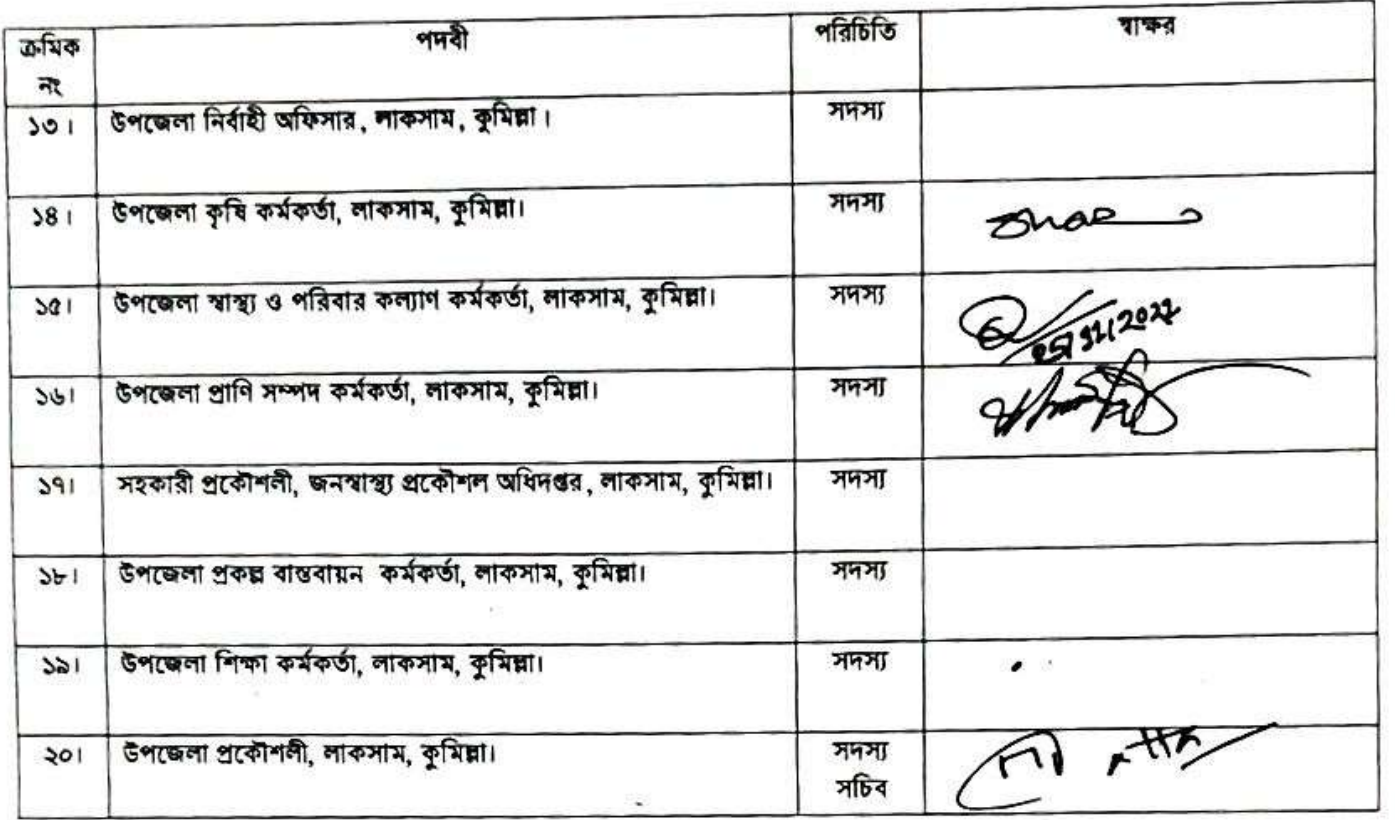 ক্রমিক নং পদবী পরিচিতি স্বাক্ষর
১৩। উপজেলা নির্বাহী অফিসার, লাকসাম, কুমিল্লা। সদস্য
১৪। উপজেলা কৃষি কর্মকর্তা, লাকসাম, কুমিল্লা। সদস্য
১৫। উপজেলা স্বাস্থ্য ও পরিবার কল্যাণ কর্মকর্তা, লাকসাম, কুমিল্লা। সদস্য
১৬। উপজেলা প্রাণি সম্পদ কর্মকর্তা, লাকসাম, কুমিল্লা। সদস্য
১৭। সহকারী প্রকৌশলী, জনস্বাস্থ্য প্রকৌশল অধিদপ্তর, লাকসাম, কুমিল্লা। সদস্য
১৮। উপজেলা প্রকল্প বাস্তবায়ন কর্মকর্তা, লাকসাম, কুমিল্লা। সদস্য
১৯। উপজেলা শিক্ষা কর্মকর্তা, লাকসাম, কুমিল্লা। সদস্য
২০। উপজেলা প্রকৌশলী, লাকসাম, কুমিল্লা। সদস্য
সচিব